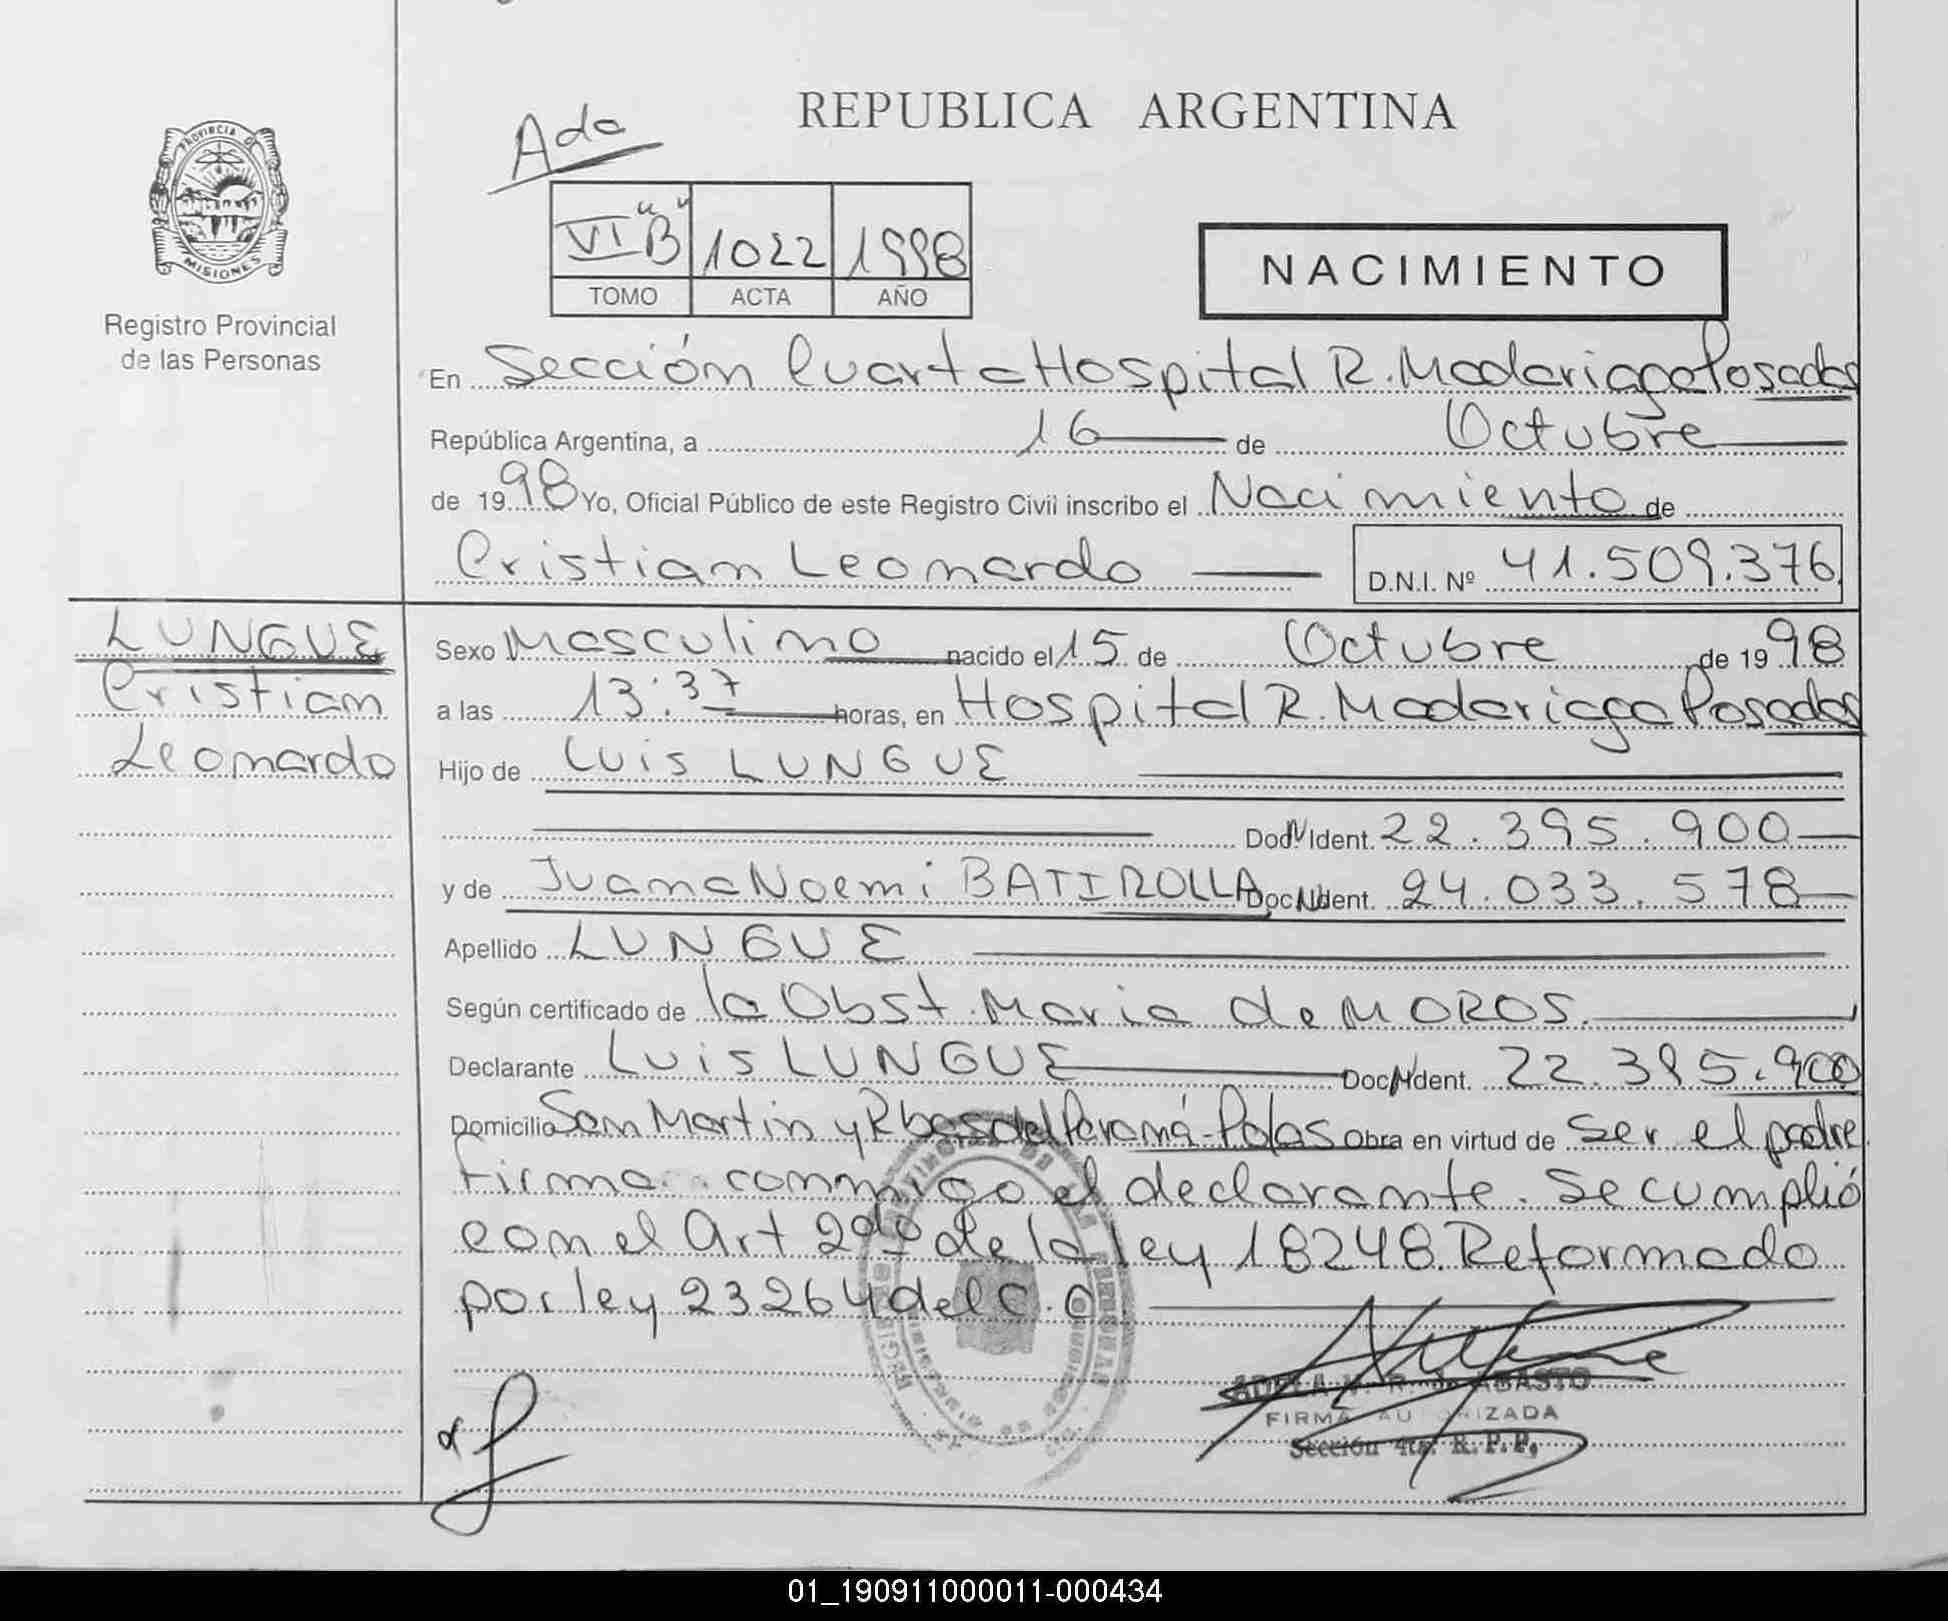 REPUBLICA ARGENTINA
Ada
PROVINCIA D
MISIONES
Registro Provincial
de las Personas
VI "B" 1022 1998
TOMO ACTA AÑO
NACIMIENTO
En Sección Cuarta Hospital R. Madariaga Posadas
República Argentina, a 16 de Octubre
de 1998 Yo, Oficial Público de este Registro Civil inscribo el Nacimiento de
Cristian Leonardo D.N.I. Nº 41.509.376
LUNGUE
Cristian
Leonardo
Sexo Masculino nacido el 15 de Octubre de 1998
a las 13:37 horas, en Hospital R. Madariaga Posadas
Hijo de Luis LUNGUE
Doc N Ident. 22.395.900
y de Juana Noemi BATIROLLA Doc N Ident. 24.033.578
Apellido LUNGUE
Según certificado de la Obst. Maria de MOROS.
Declarante Luis LUNGUE Doc N Ident. 22.395.900
Domicilio San Martin y Rbas del Paraná - Pdas Obra en virtud de ser el padre
firma conmigo el declarante. Se cumplió
con el Art 2do de la ley 18248. Reformado
por ley 23264 del C.C
ADELA R. de ABASTO
FIRMA AUTORIZADA
Sección 4ta. R. P. P.
01_190911000011-000434